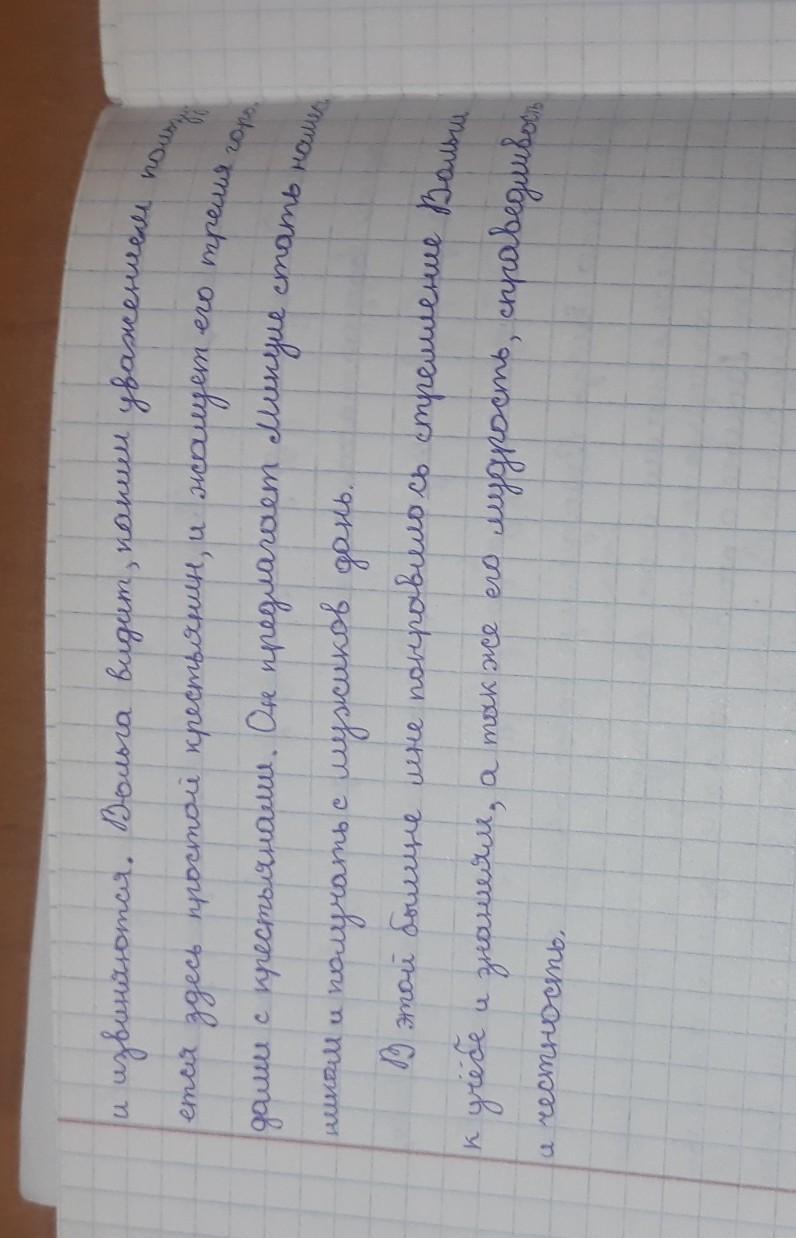 и извиняются. Вольга видит, каким уважением пользу
ется здесь простой крестьянин, и жалует его тремя горо
дами с крестьянами. Он предлагает Микуле стать намест
ником и получать с мужиков дань.
В этой былине мне понравилось стремление Вольги
к учёбе и знаниям, а также его мудрость, справедливость
и честность.